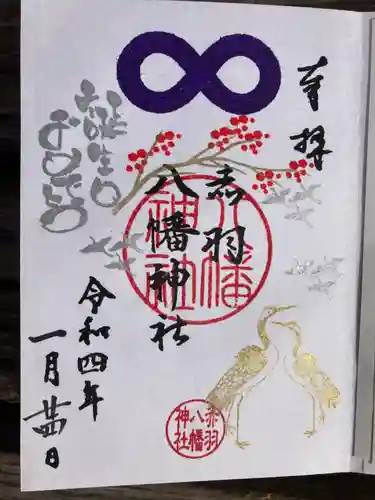 奉拝
赤羽
八幡神社
お誕生日
おめでとう
令和四年
一月廿四日
八幡
神社
赤羽
八幡
神社